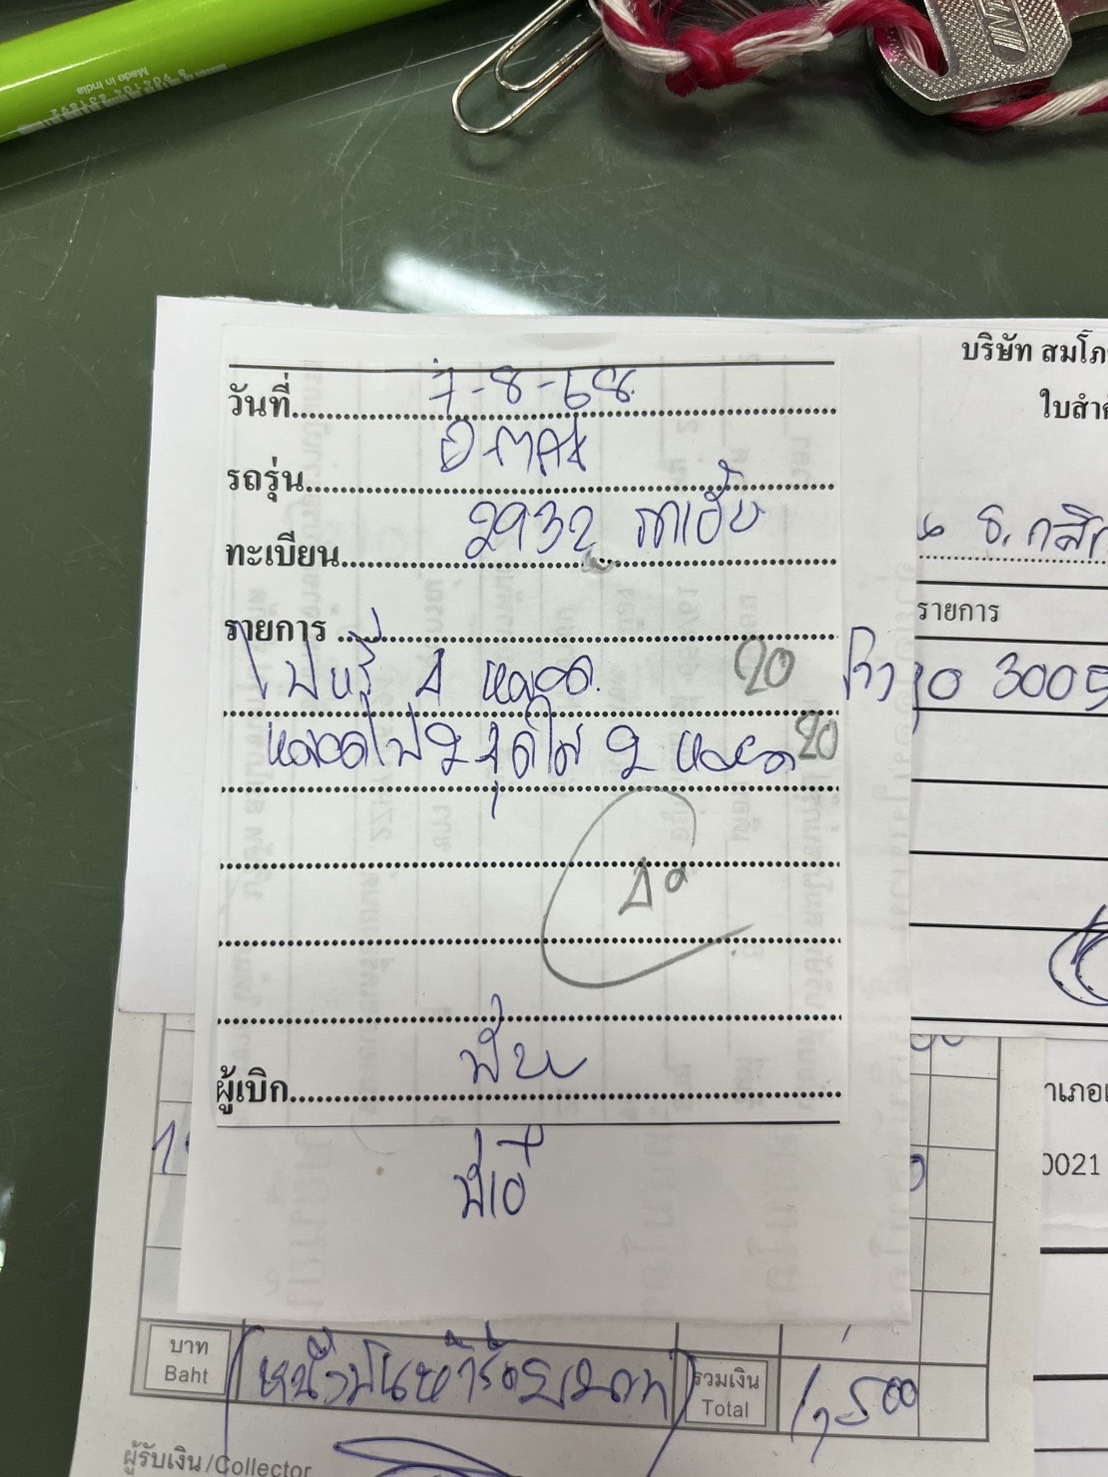 Made in India
บริษัท สมโภ
ใบสำ
วันที่ 7-8-68
รถรุ่น D-MAX
ทะเบียน 2932
ธ. กสิก
รายการ
รายการ
ไฟหรี่ 1 หลอด 20
10 3005
หลอดไฟ 2 จุดใส่ 2 หลอด 20
40
ผู้เบิก
าเภอเ
0021
พี่เอ๋
บาท
Baht
หนึ่งพันห้าร้อยบาท
รวมเงิน
Total
1,500
ผู้รับเงิน/Collector